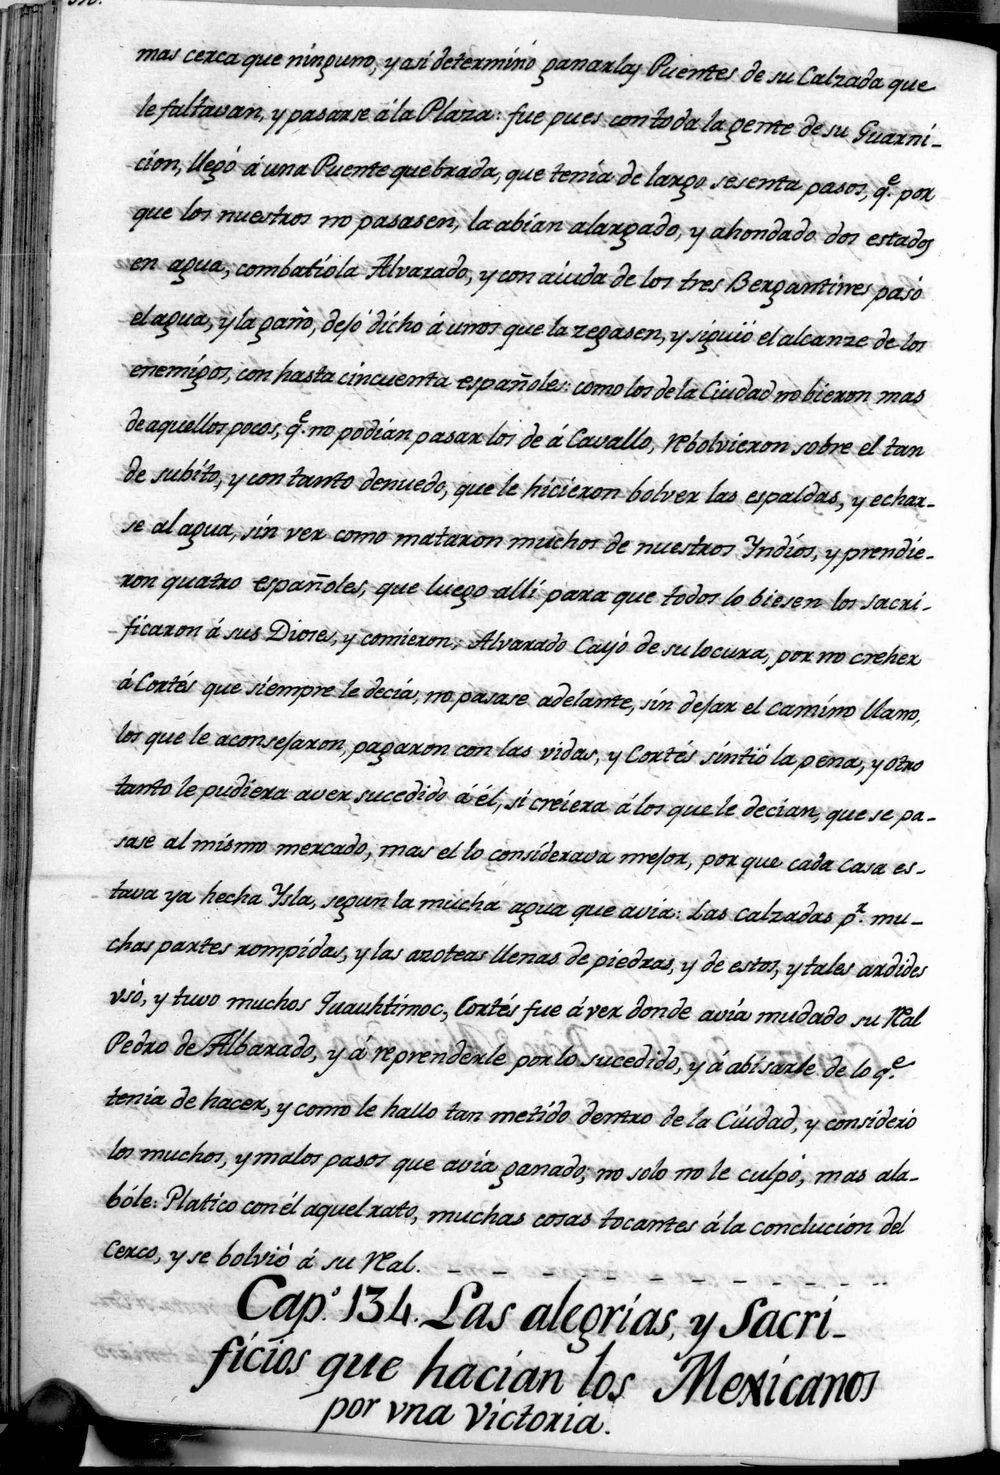 mas cerca que ninguno, y asi determinó ganar las Puentes de su Calzada que
le faltavan, y pasarse á la Plaza: fue pues con toda la gente de su Guarni-
cion, llegó á una Puente quebrada, que tenia de largo sesenta pasos, q.e por
que los nuestros no pasasen, la abian alargado, y ahondado dos estados
en agua, combatióla Alvarado, y con aiuda de los tres Bergantines pasó
el agua, y la gaño, dejó dicho á unos que la zegasen, y siguió el alcanze de los
enemigos, con hasta cincuenta españoles: como los de la Ciudad no bieron mas
de aquellos pocos, q.e no podian pasar los de á Cavallo, rebolvieron sobre el tan
de subito, y con tanto denuedo, que le hicieron bolver las espaldas, y echar-
se al agua, sin ver como mataron muchos de nuestros Yndios, y prendie-
ron quatro españoles, que luego alli para que todos lo biesen los sacri-
ficaron á sus Dioses, y comieron; Alvarado Cayó de su locura, por no creher
á Cortés que siempre le decia, no pasase adelante, sin dejar el camino llano,
los que le aconsejaron, pagaron con las vidas, y Cortés sintió la pena, y otro
tanto le pudiera aver sucedido á él, si creiera á los que le decian, que se pa-
sase al mismo mercado, mas el lo considerava mejor, por que cada casa es-
tava ya hecha Ysla, segun la mucha agua que avia: Las calzadas p.r mu-
chas partes rompidas, y las azoteas llenas de piedras, y de estos, y tales ardides
vsó, y tuvo muchos Quauhtimoc, Cortés fue á ver donde avia mudado su Real
Pedro de Albarado, y á reprenderle por lo sucedido, y á abisarle de lo q.e
tenia de hacer, y como le hallo tan metido dentro de la Ciudad, y consideró
los muchos, y malos pasos que avia ganado; no solo no le culpó, mas ala-
bóle: Platico con él aquel rato, muchas cosas tocantes á la conclución del
Cerco, y se bolvió á su Real. _ _ _ _ _ _ _ _ _ _ _
Cap.o 134. Las alegrias, y Sacri-
ficios que hacian los Mexicanos
por vna victoria.